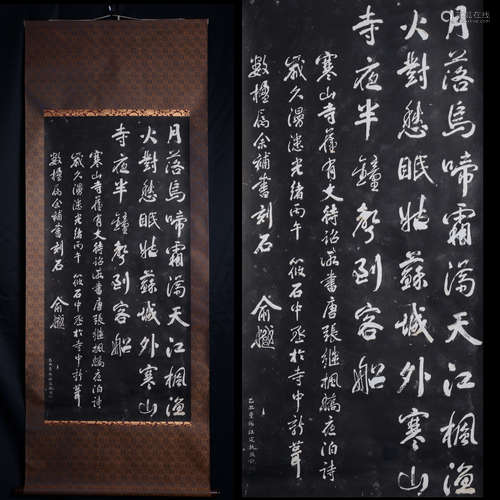 月落烏啼霜滿天江楓漁
火對愁眠姑蘇城外寒山
寺夜半鐘聲到客船
寒山寺舊有文待詔所書唐張繼楓橋夜泊詩
歲久漫漶光緒丙午筱石中丞於寺中新葺
數楹屬余補書刻石
俞樾
月落烏啼霜滿天江楓漁
火對愁眠姑蘇城外寒山
寺夜半鐘聲到客船
寒山寺舊有文待詔所書唐張繼楓橋夜泊詩
歲久漫漶光緒丙午筱石中丞於寺中新葺
數楹屬余補書刻石
俞樾